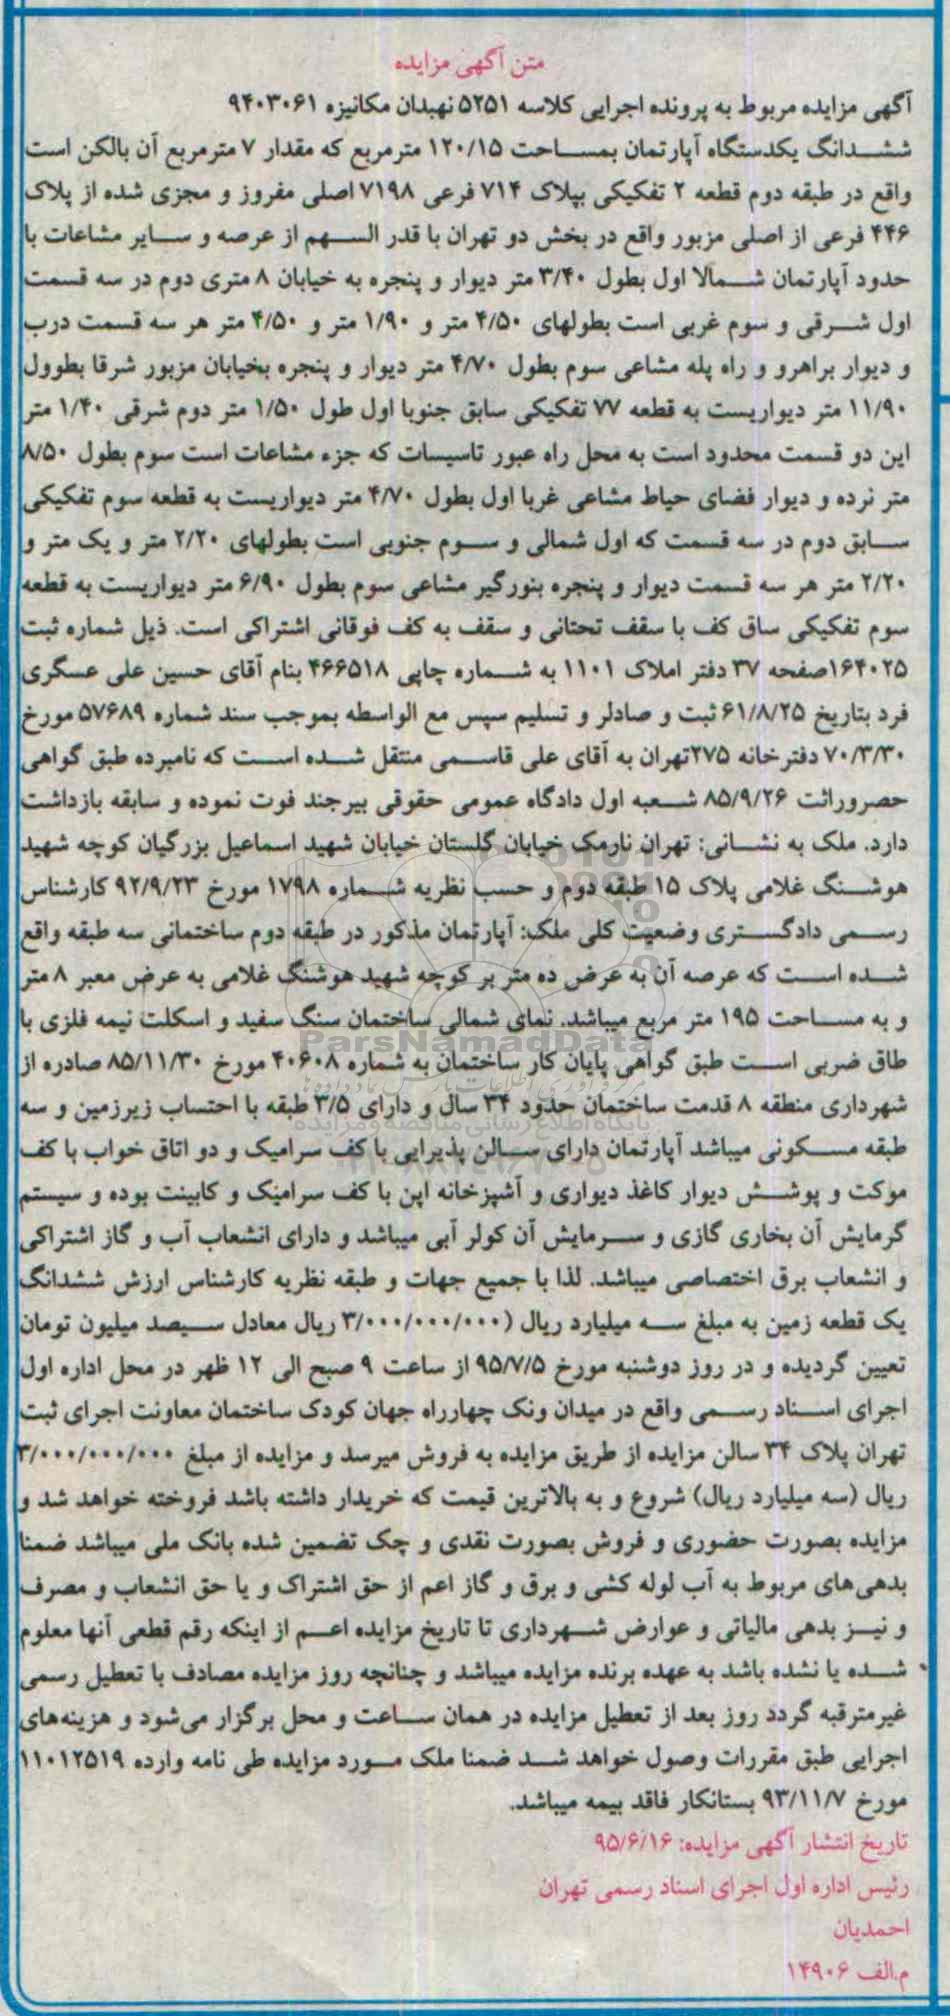 متن آگهی مزایده
آگهی مزایده مربوط به پرونده اجرایی کلاسه ۵۲۵۱ نهبدان مکانیزه ۹۴۰۳۰۶۱
ششدانگ یکدستگاه آپارتمان بمساحت ۱۲۰/۱۵ مترمربع که مقدار ۷ مترمربع آن بالکن است
واقع در طبقه دوم قطعه ۲ تفکیکی بپلاک ۷۱۴ فرعی ۷۱۹۸ اصلی مفروز و مجزی شده از پلاک
۴۴۶ فرعی از اصلی مزبور واقع در بخش دو تهران با قدر السهم از عرصه و سایر مشاعات با
حدود آپارتمان شمالا اول بطول ۳/۴۰ متر دیوار و پنجره به خیابان ۸ متری دوم در سه قسمت
اول شرقی و سوم غربی است بطولهای ۴/۵۰ متر و ۱/۹۰ متر و ۴/۵۰ متر هر سه قسمت درب
و دیوار براهرو و راه پله مشاعی سوم بطول ۴/۷۰ متر دیوار و پنجره بخیابان مزبور شرقا بطوول
۱۱/۹۰ متر دیواریست به قطعه ۷۷ تفکیکی سابق جنوبا اول طول ۱/۵۰ متر دوم شرقی ۱/۴۰ متر
این دو قسمت محدود است به محل راه عبور تاسیسات که جزء مشاعات است سوم بطول ۸/۵۰
متر نرده و دیوار فضای حیاط مشاعی غربا اول بطول ۴/۷۰ متر دیواریست به قطعه سوم تفکیکی
سابق دوم در سه قسمت که اول شمالی و سوم جنوبی است بطولهای ۲/۲۰ متر و یک متر و
۲/۲۰ متر هر سه قسمت دیوار و پنجره بنورگیر مشاعی سوم بطول ۶/۹۰ متر دیواریست به قطعه
سوم تفکیکی ساق کف با سقف تحتانی و سقف به کف فوقانی اشتراکی است. ذیل شماره ثبت
۱۶۴۰۲۵صفحه ۳۷ دفتر املاک ۱۱۰۱ به شماره چاپی ۴۶۶۵۱۸ بنام آقای حسین علی عسگری
فرد بتاریخ ۶۱/۸/۲۵ ثبت و صادلر و تسلیم سپس مع الواسطه بموجب سند شماره ۵۷۶۸۹ مورخ
۷۰/۳/۳۰ دفترخانه ۲۷۵تهران به آقای علی قاسمی منتقل شده است که نامبرده طبق گواهی
حصروراثت ۸۵/۹/۲۶ شعبه اول دادگاه عمومی حقوقی بیرجند فوت نموده و سابقه بازداشت
دارد. ملک به نشانی: تهران نارمک خیابان گلستان خیابان شهید اسماعیل بزرگیان کوچه شهید
هوشنگ غلامی پلاک ۱۵ طبقه دوم و حسب نظریه شماره ۱۷۹۸ مورخ ۹۲/۹/۲۳ کارشناس
رسمی دادگستری وضعیت کلی ملک: آپارتمان مذکور در طبقه دوم ساختمانی سه طبقه واقع
شده است که عرصه آن به عرض ده متر بر کوچه شهید هوشنگ غلامی به عرض معبر ۸ متر
و به مساحت ۱۹۵ متر مربع میباشد. نمای شمالی ساختمان سنگ سفید و اسکلت نیمه فلزی با
ParsNamadData
طاق ضربی است طبق گواهی پایان کار ساختمان به شماره ۴۰۶۰۸ مورخ ۸۵/۱۱/۳۰ صادره از
شهرداری منطقه ۸ قدمت ساختمان حدود ۳۴ سال و دارای ۳/۵ طبقه با احتساب زیرزمین و سه
پایگاه اطلاع رسانی مناقصه و مزایده
طبقه مسکونی میباشد آپارتمان دارای سالن پذیرایی با کف سرامیک و دو اتاق خواب با کف
موکت و پوشش دیوار کاغذ دیواری و آشپزخانه اپن با کف سرامیک و کابینت بوده و سیستم
گرمایش آن بخاری گازی و سرمایش آن کولر آبی میباشد و دارای انشعاب آب و گاز اشتراکی
و انشعاب برق اختصاصی میباشد. لذا با جمیع جهات و طبقه نظریه کارشناس ارزش ششدانگ
یک قطعه زمین به مبلغ سه میلیارد ریال (۳/۰۰۰/۰۰۰/۰۰۰ ریال معادل سیصد میلیون تومان
تعیین گردیده و در روز دوشنبه مورخ ۹۵/۷/۵ از ساعت ۹ صبح الی ۱۲ ظهر در محل اداره اول
اجرای اسناد رسمی واقع در میدان ونک چهارراه جهان کودک ساختمان معاونت اجرای ثبت
تهران پلاک ۳۴ سالن مزایده از طریق مزایده به فروش میرسد و مزایده از مبلغ ۳/۰۰۰/۰۰۰/۰۰۰
ریال (سه میلیارد ریال) شروع و به بالاترین قیمت که خریدار داشته باشد فروخته خواهد شد و
مزایده بصورت حضوری و فروش بصورت نقدی و چک تضمین شده بانک ملی میباشد ضمنا
بدهی‌های مربوط به آب لوله کشی و برق و گاز اعم از حق اشتراک و یا حق انشعاب و مصرف
و نیز بدهی مالیاتی و عوارض شهرداری تا تاریخ مزایده اعم از اینکه رقم قطعی آنها معلوم
شده یا نشده باشد به عهده برنده مزایده میباشد و چنانچه روز مزایده مصادف با تعطیل رسمی
غیرمترقبه گردد روز بعد از تعطیل مزایده در همان ساعت و محل برگزار می‌شود و هزینه‌های
اجرایی طبق مقررات وصول خواهد شد ضمنا ملک مورد مزایده طی نامه وارده ۱۱۰۱۲۵۱۹
مورخ ۹۳/۱۱/۷ بستانکار فاقد بیمه میباشد.
تاریخ انتشار آگهی مزایده: ۹۵/۶/۱۶
رئیس اداره اول اجرای اسناد رسمی تهران
احمدیان
م.الف ۱۴۹۰۶